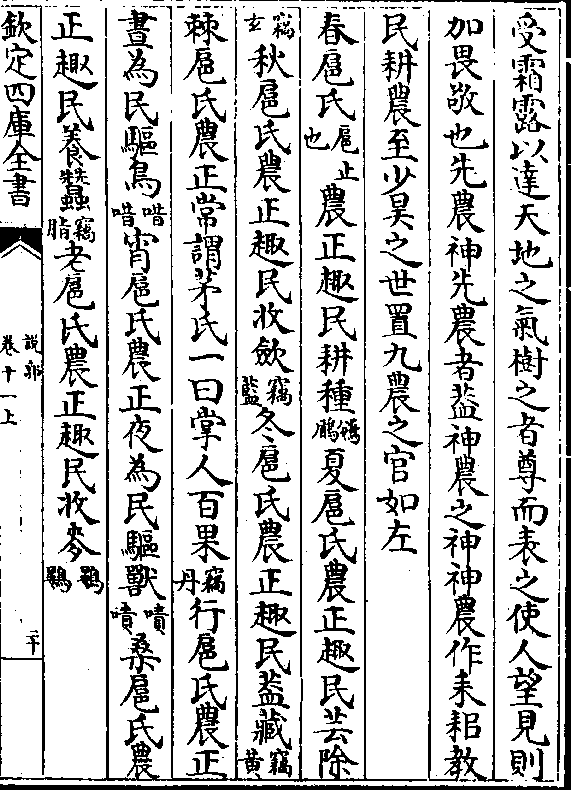 受霜露以達天地之氣樹之者尊而表之使人望見則
加畏敬也先農神先農者蓋神農之神神農作耒耜教
民耕農至少昊之世置九農之官如左
春扈氏扈止也農正趣民耕種鳻鶥夏扈氏農正趣民芸除
竊玄秋扈氏農正趣民收斂竊藍冬扈氏農正趣民蓋藏竊黃
棘扈氏農正常謂茅氏一曰掌人百果竊丹行扈氏農正
晝為民驅鳥唶唶宵扈氏農正夜為民驅獸嘖嘖桑扈氏農
正趣民養蠶竊脂老扈氏農正趣民收麥鷃鷃
欽定四庫全書
說郛
卷十一上
二十